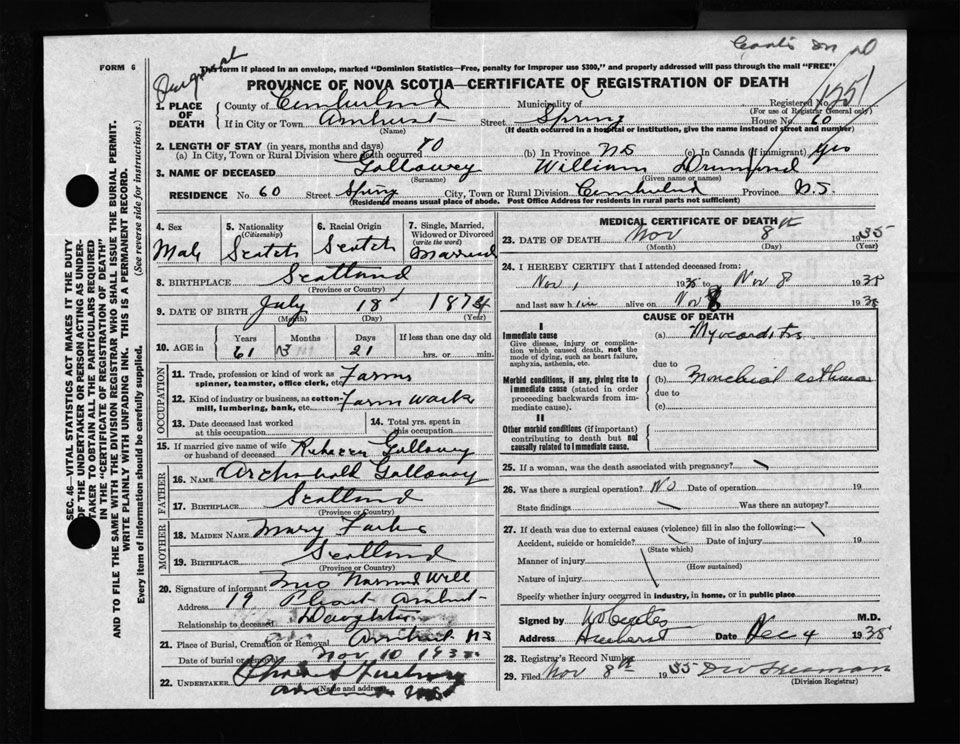 FORM 6
This form if placed in an envelope, marked "Dominion Statistics—Free, penalty for Improper use $300," and properly addressed will pass through the mail "FREE"
PROVINCE OF NOVA SCOTIA—CERTIFICATE OF REGISTRATION OF DEATH
1. PLACE OF DEATH
County of Cumberland Municipality of Registered No. 1251
(For use of Registrar General only)
If in City or Town Amherst Street Spring House No. 60
(Name) (If death occurred in a hospital or institution, give the name instead of street and number)
2. LENGTH OF STAY (in years, months and days)
(a) In City, Town or Rural Division where death occurred (b) In Province NS (c) In Canada (if immigrant) yrs
3. NAME OF DECEASED Gallowey William Drumond
(Surname) (Given name or names)
RESIDENCE No. 60 Street Spring City, Town or Rural Division Cumberland Province N.S.
(Residence means usual place of abode. Post Office Address for residents in rural parts not sufficient)
4. Sex
Male
5. Nationality (Citizenship)
Scotch
6. Racial Origin
Scotch
7. Single, Married, Widowed or Divorced (write the word)
Married
8. BIRTHPLACE Scotland
(Province or Country)
9. DATE OF BIRTH July 18 1874
(Month) (Day) (Year)
10. AGE in Years Months Days If less than one day old
61 3 21 hrs. or min.
OCCUPATION
11. Trade, profession or kind of work as spinner, teamster, office clerk, etc. Farm
12. Kind of industry or business, as cotton-mill, lumbering, bank, etc. Farm work
13. Date deceased last worked at this occupation
14. Total yrs. spent in this occupation
15. If married give name of wife or husband of deceased Rebecca Gallowey
FATHER
16. NAME Archibald Gallowey
17. BIRTHPLACE Scotland
(Province or Country)
MOTHER
18. MAIDEN NAME Mary
19. BIRTHPLACE Scotland
(Province or Country)
20. Signature of informant
Address 19 Amherst
Relationship to deceased Daughter
21. Place of Burial, Cremation or Removal Amherst NS
Date of burial or removal Nov 10 1935
22. UNDERTAKER
(Name and address)
MEDICAL CERTIFICATE OF DEATH
23. DATE OF DEATH Nov 8th 1935
(Month) (Day) (Year)
24. I HEREBY CERTIFY that I attended deceased from:
Nov 1 1935 to Nov 8 1935
and last saw him alive on Nov 8 1935
CAUSE OF DEATH
I
Immediate cause
Give disease, injury or complication which caused death, not the mode of dying, such as heart failure, asphyxia, asthenia, etc.
(a) Myocarditis
due to
Morbid conditions, if any, giving rise to immediate cause (stated in order proceeding backwards from immediate cause).
(b) Bronchial asthma
due to
(c)
II
Other morbid conditions (if important) contributing to death but not causally related to immediate cause.
25. If a woman, was the death associated with pregnancy?
26. Was there a surgical operation? No Date of operation 19
State findings Was there an autopsy?
27. If death was due to external causes (violence) fill in also the following:—
Accident, suicide or homicide? Date of injury 19
(State which)
Manner of injury
(How sustained)
Nature of injury
Specify whether injury occurred in industry, in home, or in public place
Signed by M.D.
Address Amherst Date Dec 4 1935
28. Registrar's Record Number
29. Filed Nov 8th 1935
(Division Registrar)
SEC. 46—VITAL STATISTICS ACT MAKES IT THE DUTY OF THE UNDERTAKER OR PERSON ACTING AS UNDERTAKER TO OBTAIN ALL THE PARTICULARS REQUIRED IN THE "CERTIFICATE OF REGISTRATION OF DEATH" AND TO FILE THE SAME WITH THE DIVISION REGISTRAR WHO SHALL ISSUE THE BURIAL PERMIT.
WRITE PLAINLY WITH UNFADING INK. THIS IS A PERMANENT RECORD.
Every item of information should be carefully supplied. (See reverse side for instructions.)